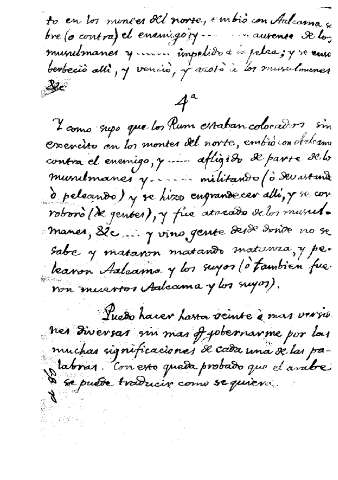 to en los montes del norte, embió con Aalcama so
bre (o contra) el enemigo; y ....... ausense de los
musulmanes y ....... impelido a la pelea; y se enso
berbeció alli, y venció, y azotó a los musulmanes
&c
4ª
Y como supo que los Rum estaban colocados sin
exercito en los montes del norte, embió con
contra el enemigo, y ...... afligido de parte de lo
musulmanes y ....... militando (ó devastando
ò peleando) y se hizo engrandecer alli, y se cor
roboró (de gentes), y fue atacado de los musul-
manes, &c .... y vino gente desde donde no se
sabe y mataron matando matanza, y pe-
learon Aalcama y los suyos (ò tambien fue-
ron muertos Aalcama y los suyos).
Puedo hacer hasta veinte ò mas versio
nes diversas sin mas q̃ gobernarme por las
muchas significaciones de cada una de las pa-
labras. Con esto queda probado que el arabe
se puede traducir como se quiera.